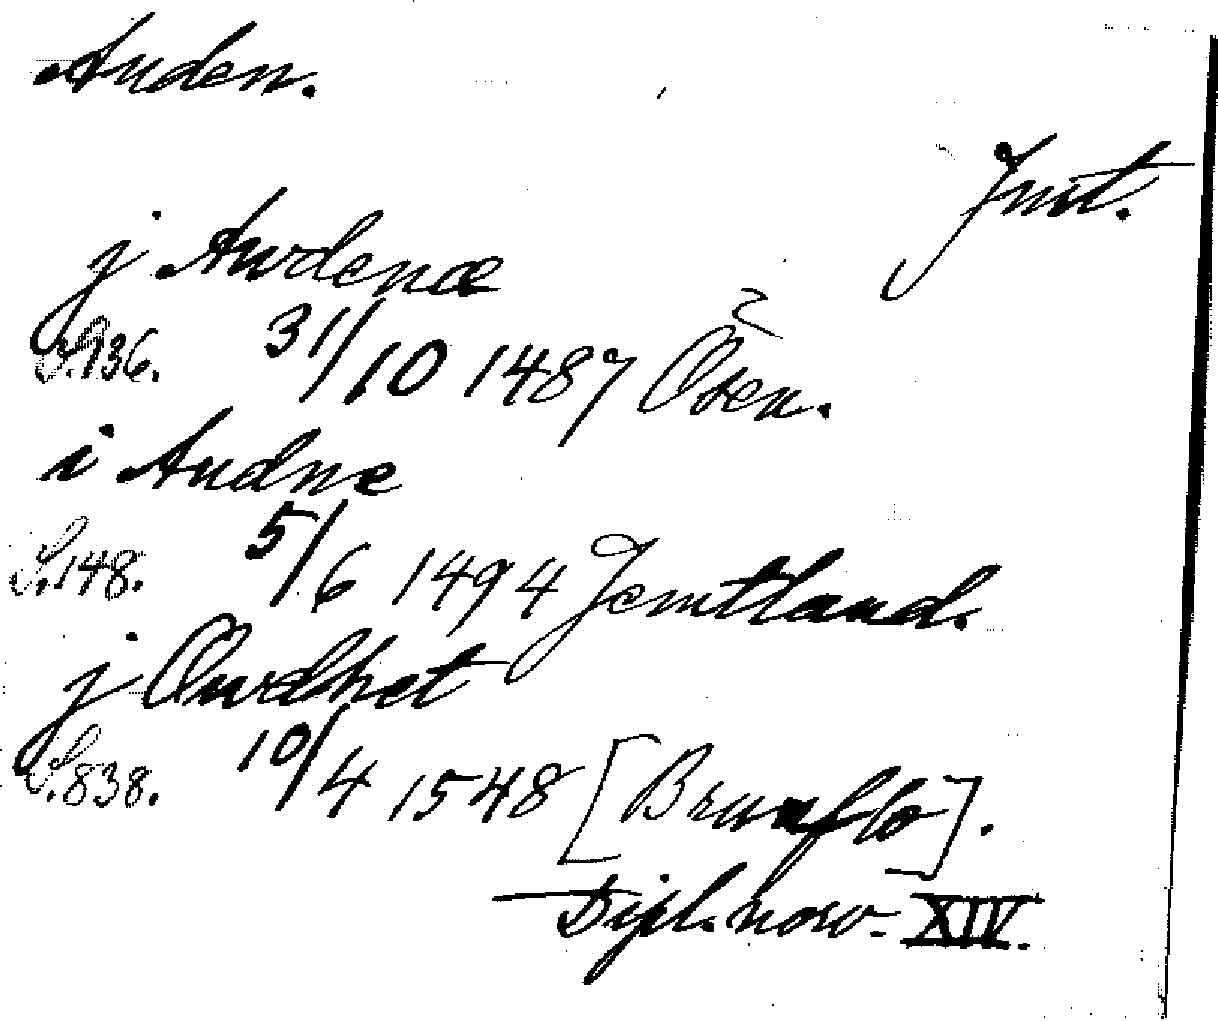 Anden.
Jmt.
j Awdenæ
S.136. 31/10 1487 Osen.
i Andne
S.148. 5/6 1494 Jemtland.
j Owdhet
S.838. 10/4 1548 [Brunflo].
Dipl. norv. XIV.